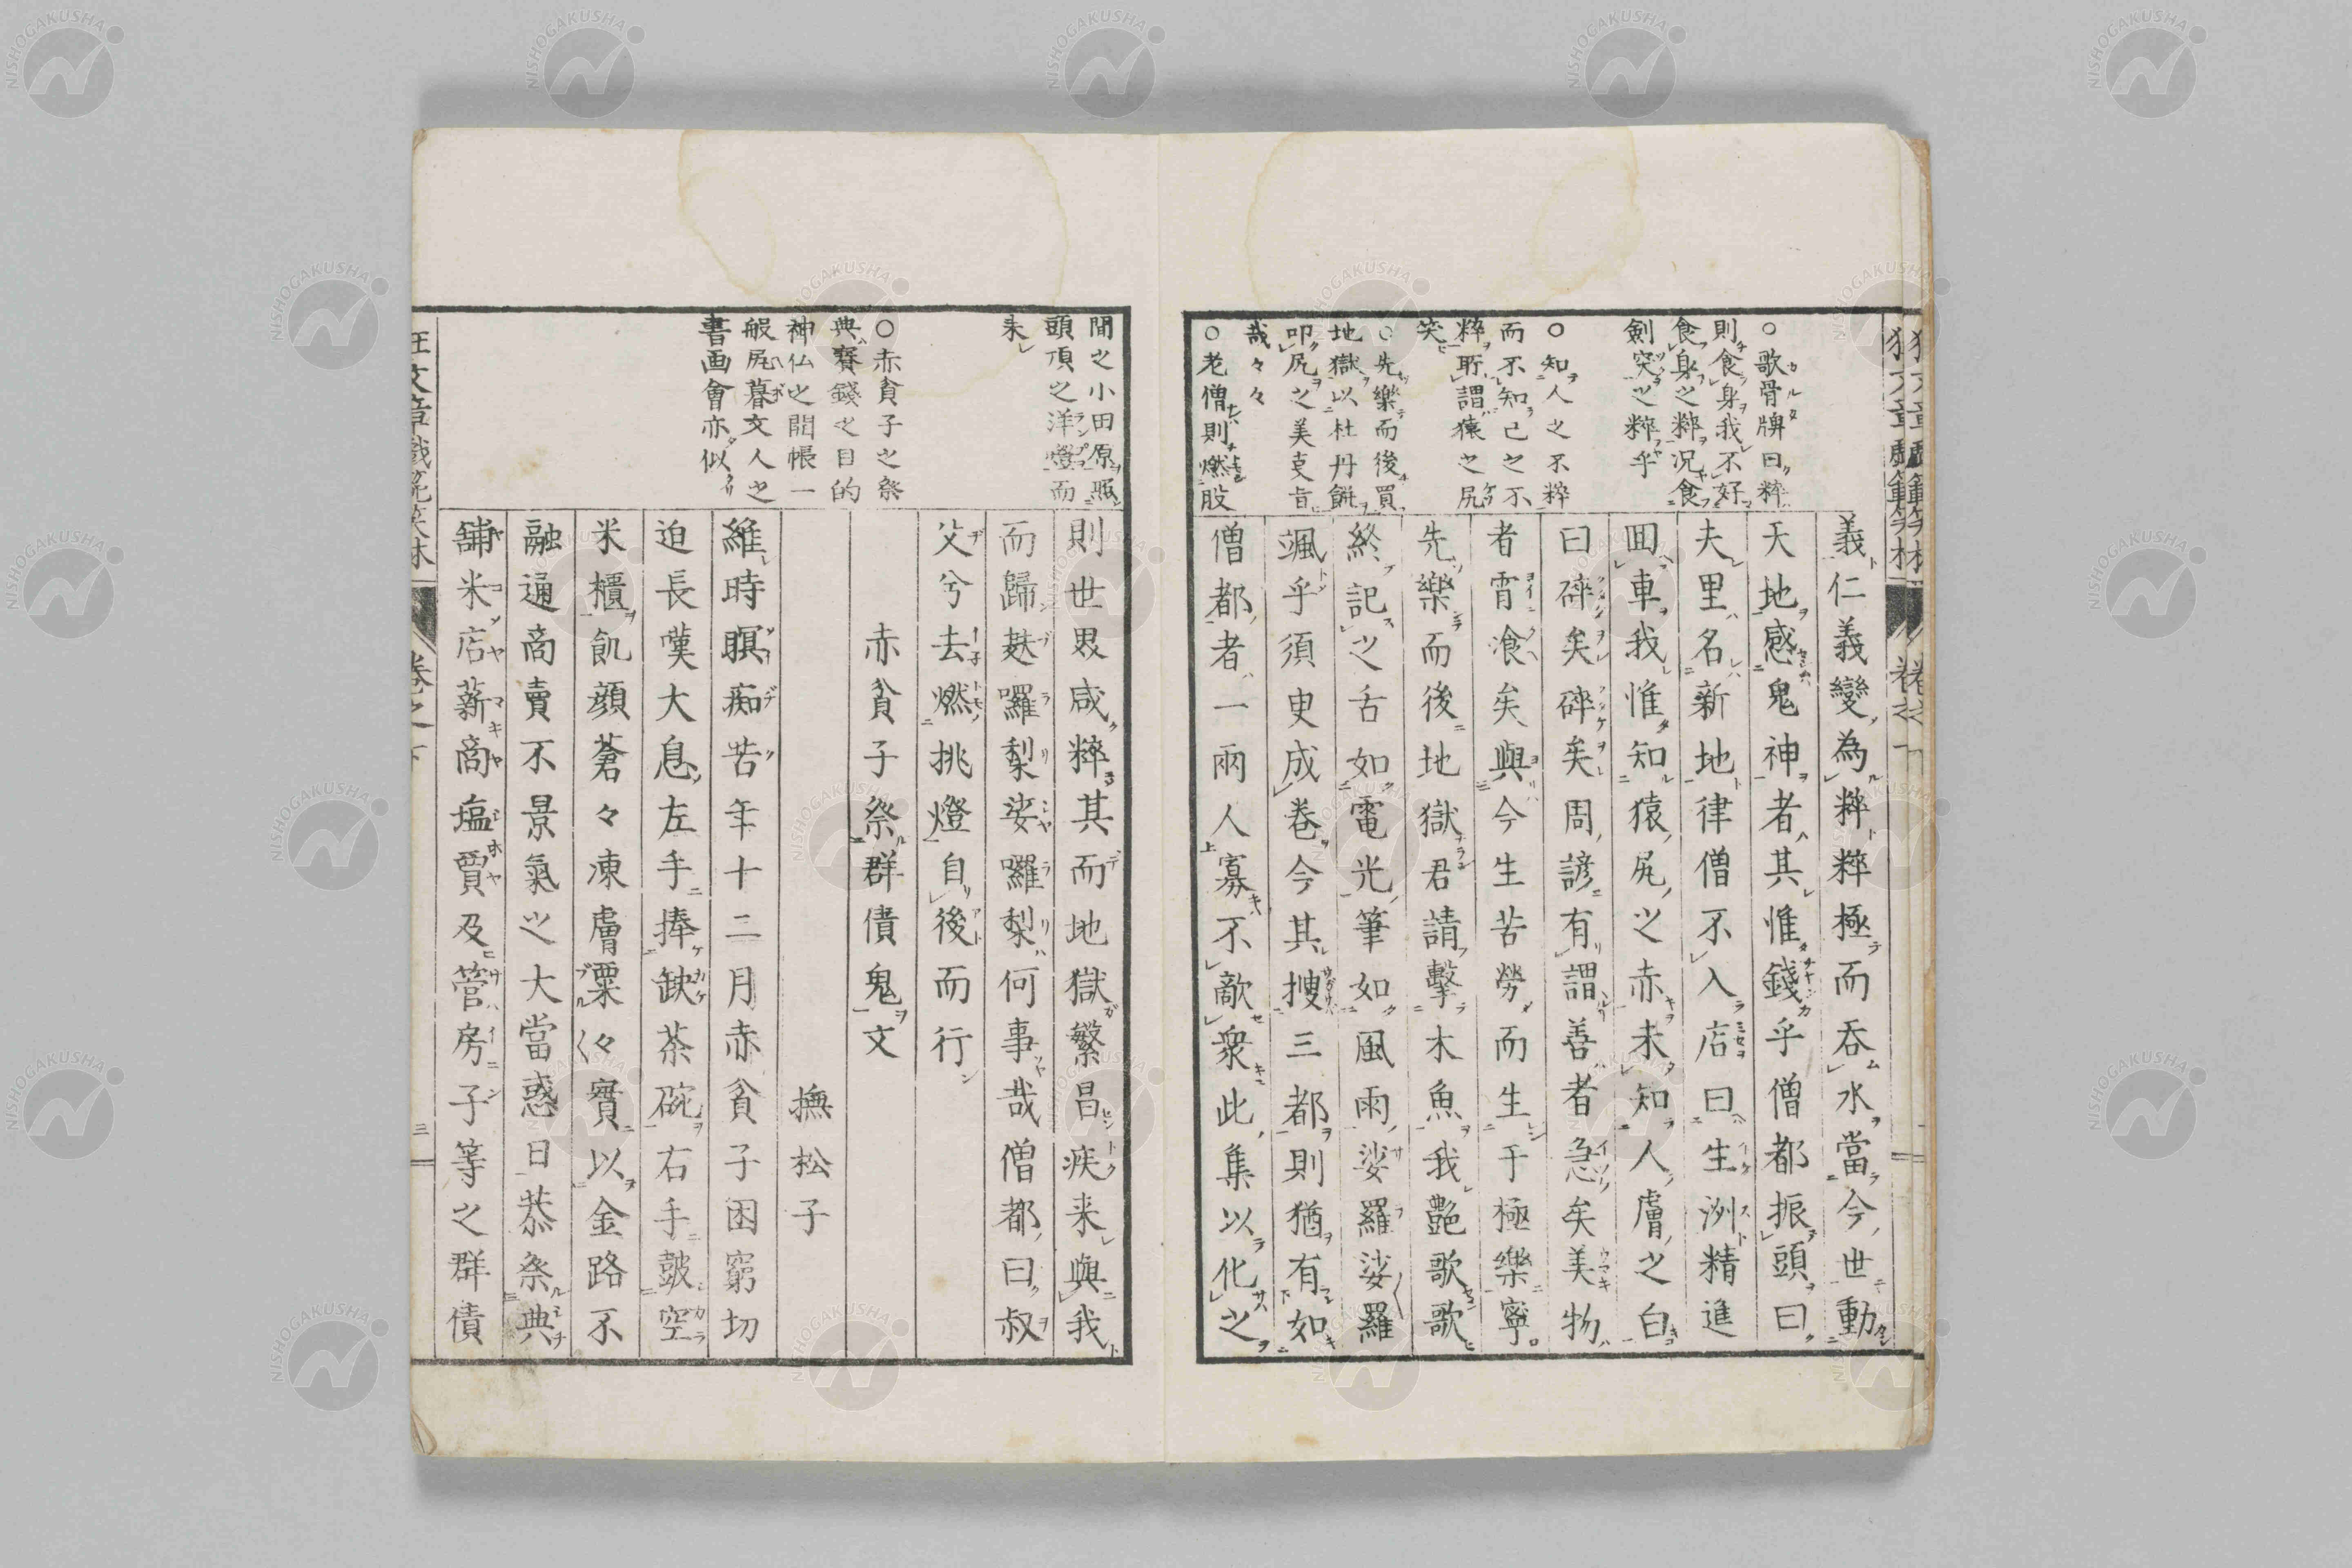 義仁義變為粹粹極而呑水當今世動
天地感鬼神者其惟錢乎僧都振頭曰
夫里名新地律僧不入店曰生洲精進
囬車我惟知猿尻之赤未知人膚之白
曰碎矣碎矣周諺有謂善者急矣美物
者宵飡矣與今生苦勞而生于極樂寧
先樂而後地獄君請擊木魚我艶歌歌
終記之舌如電光筆如風雨娑羅娑羅
颯乎須臾成巻今其搜三都則猶有如
僧都者一兩人寡不敵衆此集以化之
○歌骨牌曰粹
則食身我不好
食身之粹况食
劍突之粹乎
○知人之不粹
而不知己之不
粹所謂猿之尻
笑
○先樂而後買
地獄以杜丹餅
叩尻之美更旨
哉々々
○老僧則燃股
間之小田原照
頭頂之洋燈而
来
○赤貧子之祭
典賽錢之目的
神仏之開帳一
般尻暮文人之
書画會亦似
則世界咸粹其而地獄繁昌疾来與我
而歸麸囉梨娑囉梨何事哉僧都曰叔
父兮去燃挑燈自後而行
赤貧子祭群債鬼文
撫松子
維時瞑痴苦年十二月赤貧子困窮切
迫長嘆大息左手捧缺茶碗右手皷空
米櫃飢顔蒼々凍膚粟々實以金路不
融通商賣不景氣之大當惑日恭祭典
舗米店薪商塩賈及管房子等之群債
巻之下
三